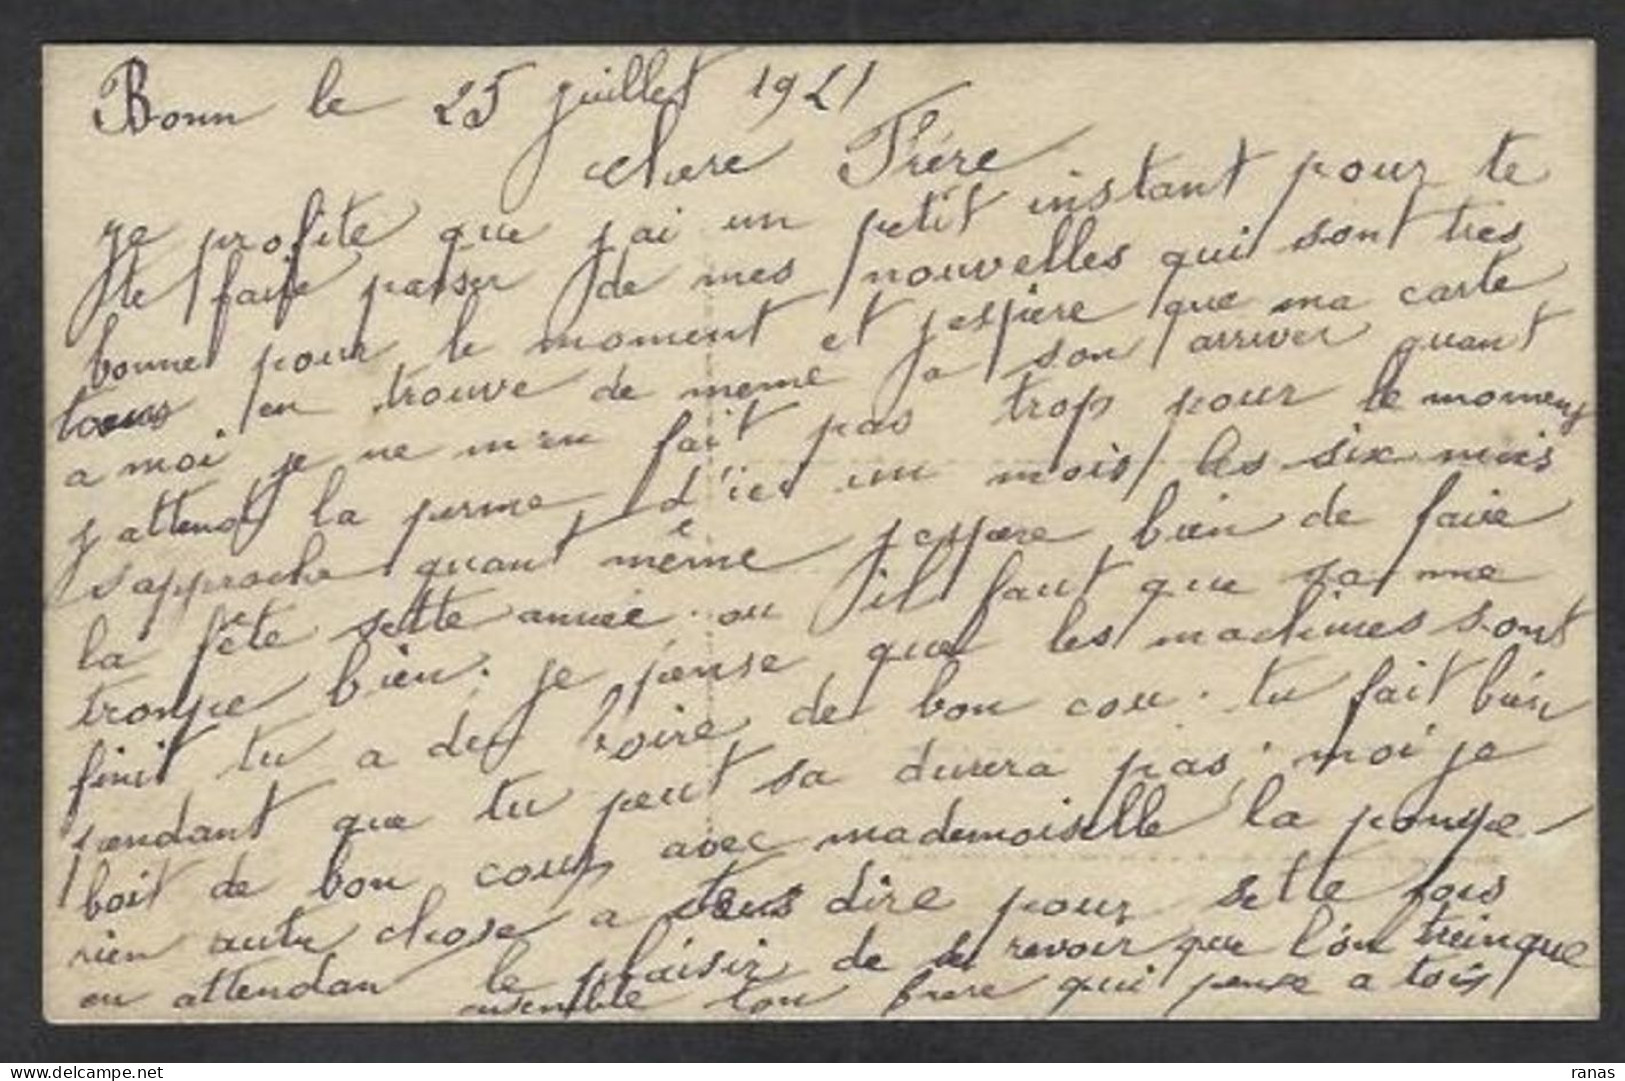 Bonn le 25 juillet 1921
chere Frére
je profite que j'ai un petit instant pour te
te faire passer de mes nouvelles qui sont tres
bonne pour le moment et j'espere que ma carte
tous en trouve de meme a son arriver quant
a moi je ne m'en fait pas trop pour le moment
j'attend la perme d'ici un mois les six mois
s'approche quant même j'espere bien de faire
la fête sette année ou il faut que sa me
trompe bien. je pense que les machines sont
finit tu a de boire de bon cou. tu fait bien
pendant que tu peut sa durera pas, moi je
boit de bon coup avec mademoiselle la pompe
rien autre chose a tous dire pour sette fois
en attendan le plaisir de se revoir que l'on treinque
ensemble ton frere qui pense a tois
ranas